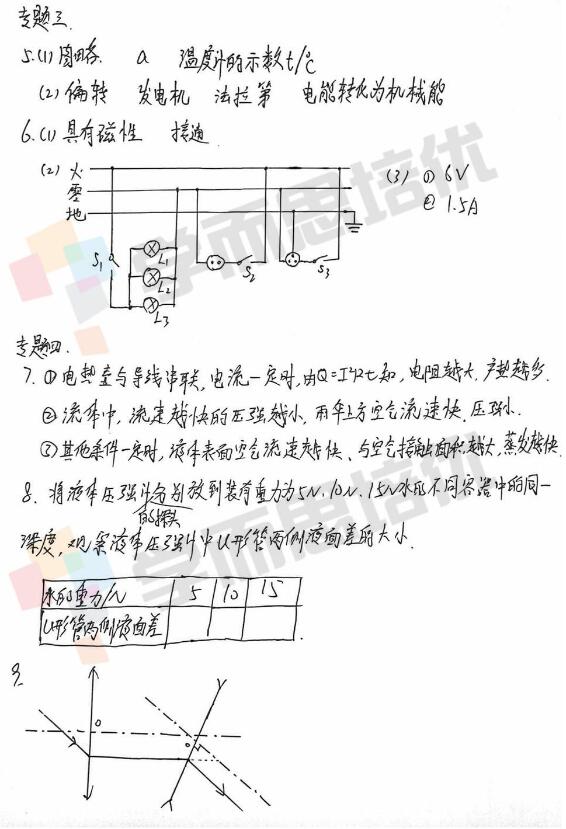 专题三.
5.(1)图略. a 温度计的示数t/℃
(2)偏转 发电机 法拉第 电能转化为机械能
6.(1)具有磁性 接通
(2) 火
零
地
S1
L1
L2
L3
S2
S3
(3) ① 6V
② 1.5A
专题四.
7. ①电热壶与导线串联,电流一定时,由Q=I²Rt知,电阻越大,产热越多.
②流体中,流速越快的压强越小,雨伞上方空气流速快.压强小.
③其他条件一定时,液体表面空气流速越快、与空气接触面积越大,蒸发越快.
8. 将液体压强计分别放到装有重力为5N、10N、15N水的不同容器中的同一
的探头
深度,观察液体压强计中U形管两侧液面差的大小.
水的重力/N 5 10 15
U形管两侧液面差
9.
O
O
学而思培优
学而思培优
学而思培优